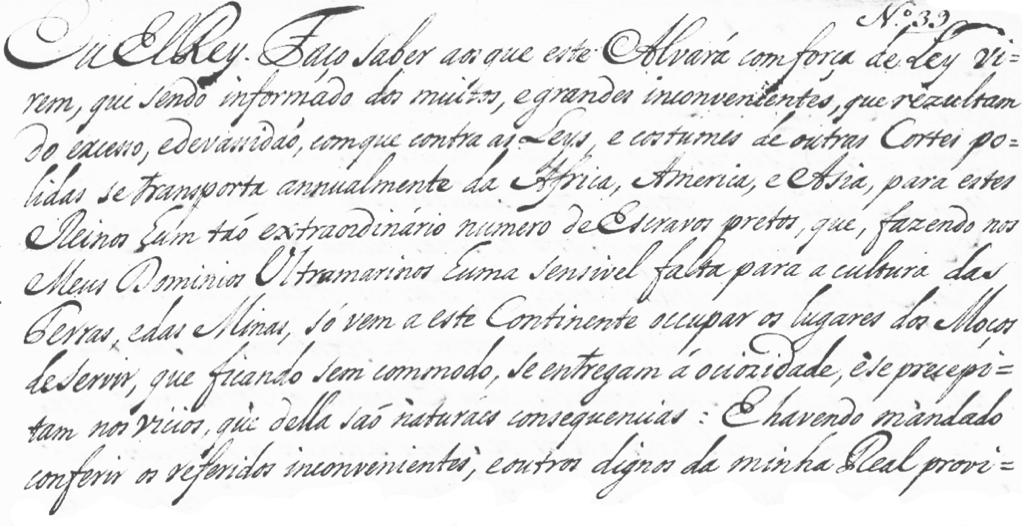 N.º 39
Eu ElRey. Faço saber aos que este Alvará com força de Ley vi=
rem, que sendo informado dos muitos, e grandes inconvenientes, que rezultam
do excesso, e devassidaõ, com que contra as Leys, e costumes de outras Cortes po=
lidas se transporta annualmente da Africa, America, e Asia, para estes
Reinos hum taõ extraordinário numero de Escravos pretos, que, fazendo nos
Meus Dominios Ultramarinos huma sensivel falta para a cultura das
Terras, e das Minas, só vem a este Continente occupar os lugares dos Moços
de servir, que ficando sem commodo, se entregam á ociozidade, e se precepi=
tam nos vicios, que della saõ naturaes consequencias: E havendo mandado
conferir os referidos inconvenientes, e outros dignos da minha Real provi=